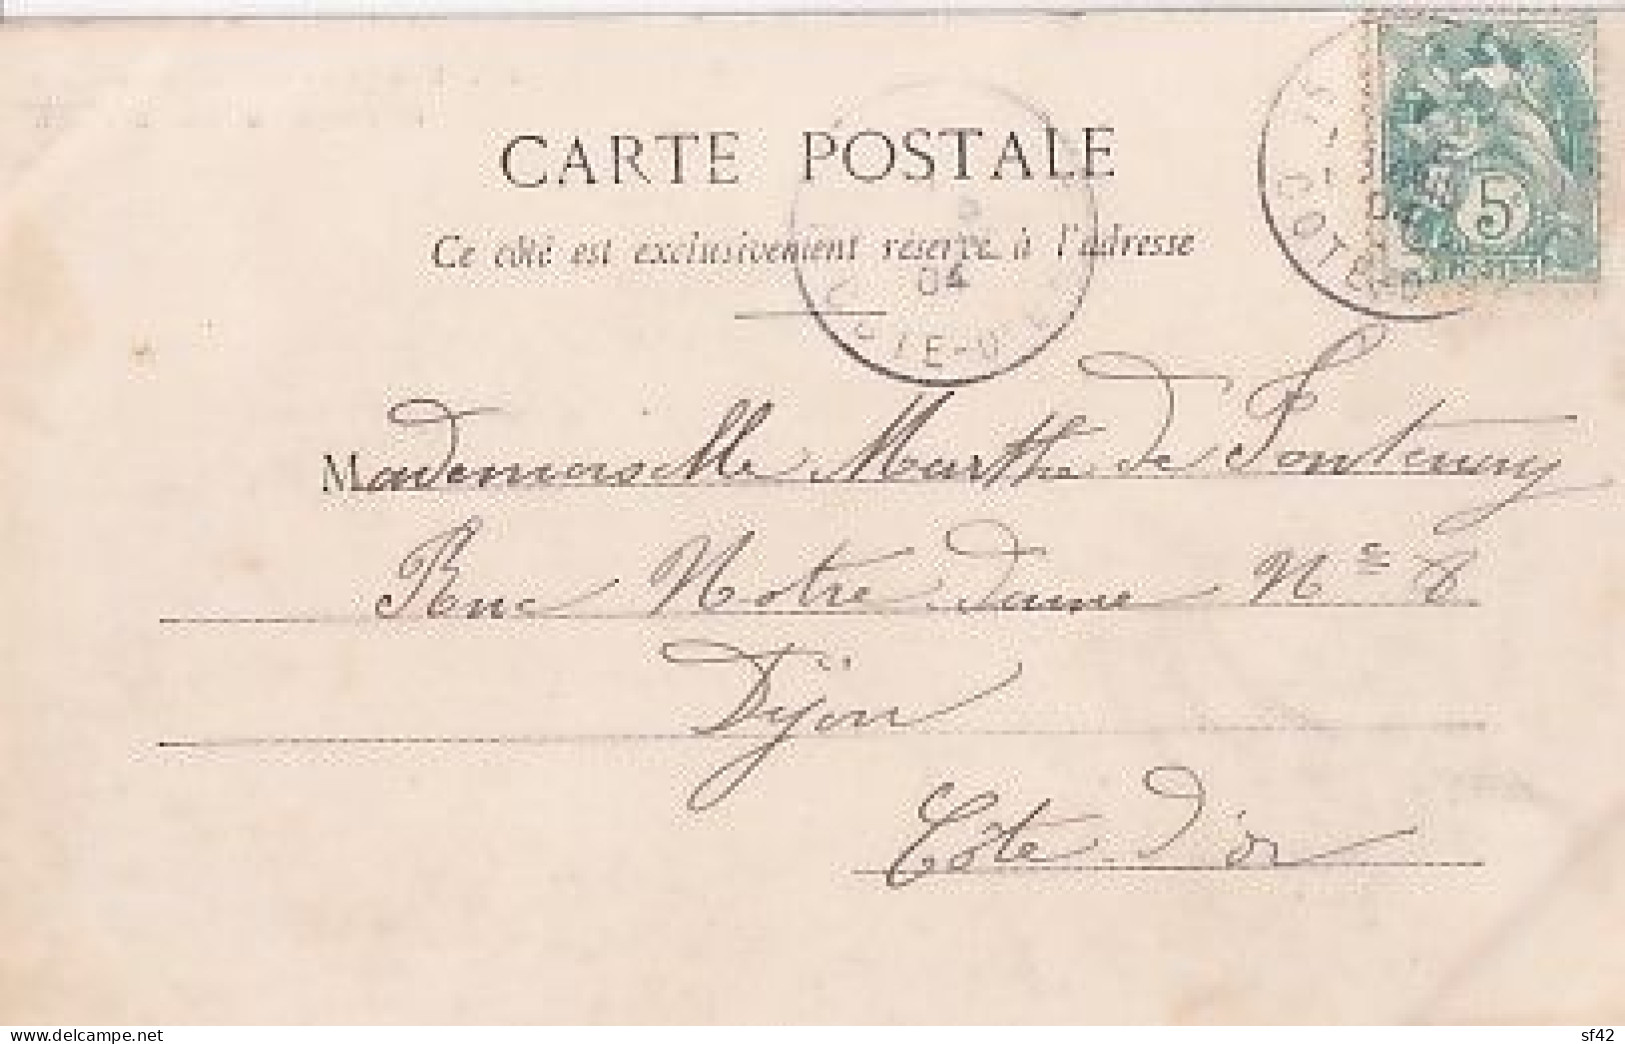 CARTE POSTALE
Ce côté est exclusivement réservé à l'adresse
5c
04
04
COTE-D
Mademoiselle Marthe de Fontenay
Rue Notre dame N° 8
Dijon
Côte d'or
www.delcampe.net
sf42